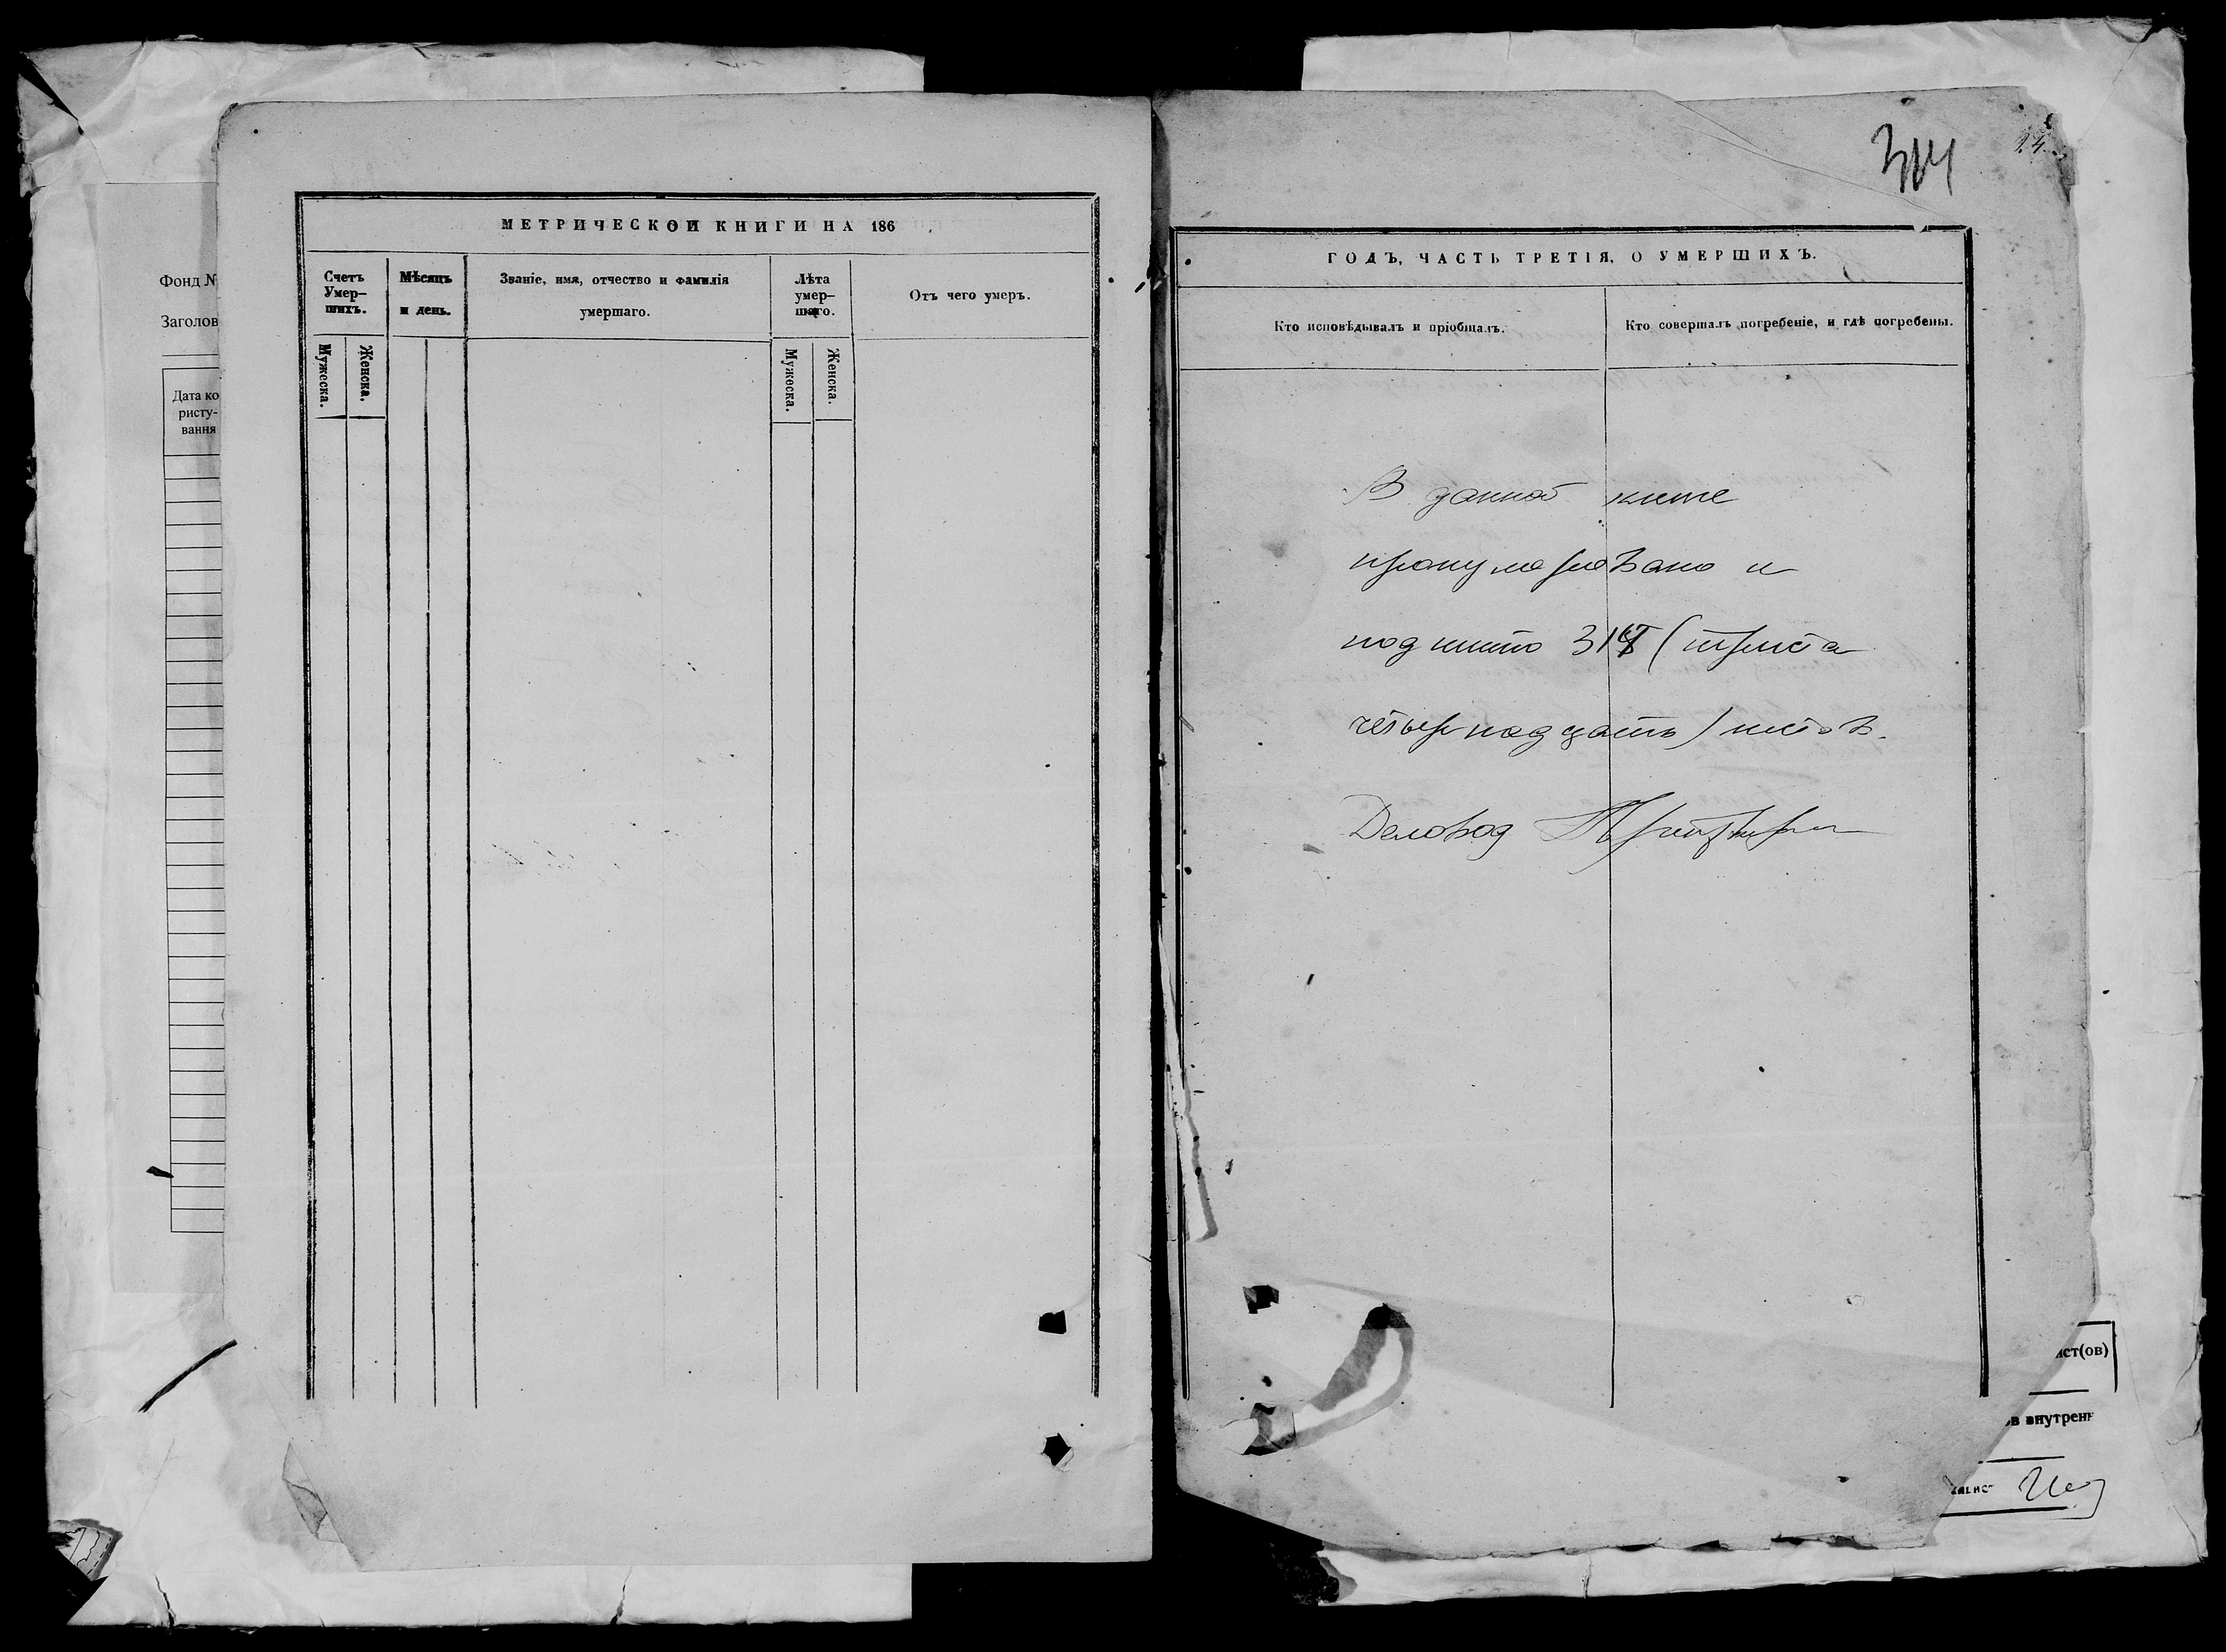 Фонд №
Заголов
Дата ко
ристу-
вання
МЕТРИЧЕСКОЙ КНИГИ НА 186
Счетъ
Умер-
шихъ.
Мѣсяцъ
и день.
Званіе, имя, отчество и фамилія
умершаго.
Лѣта
умер-
шаго.
Отъ чего умеръ.
Мужеска.
Женска.
Мужеска.
Женска.
314
24.
ГОДЪ, ЧАСТЬ ТРЕТІЯ, О УМЕРШИХЪ.
Кто исповѣдывалъ и пріобщалъ.
Кто совершалъ погребеніе, и гдѣ погребены.
В данной книге
пронумеровано и
подшито 314 (триста
четырнадцать) листов.
Деловод
ист(ов)
ов внутрен